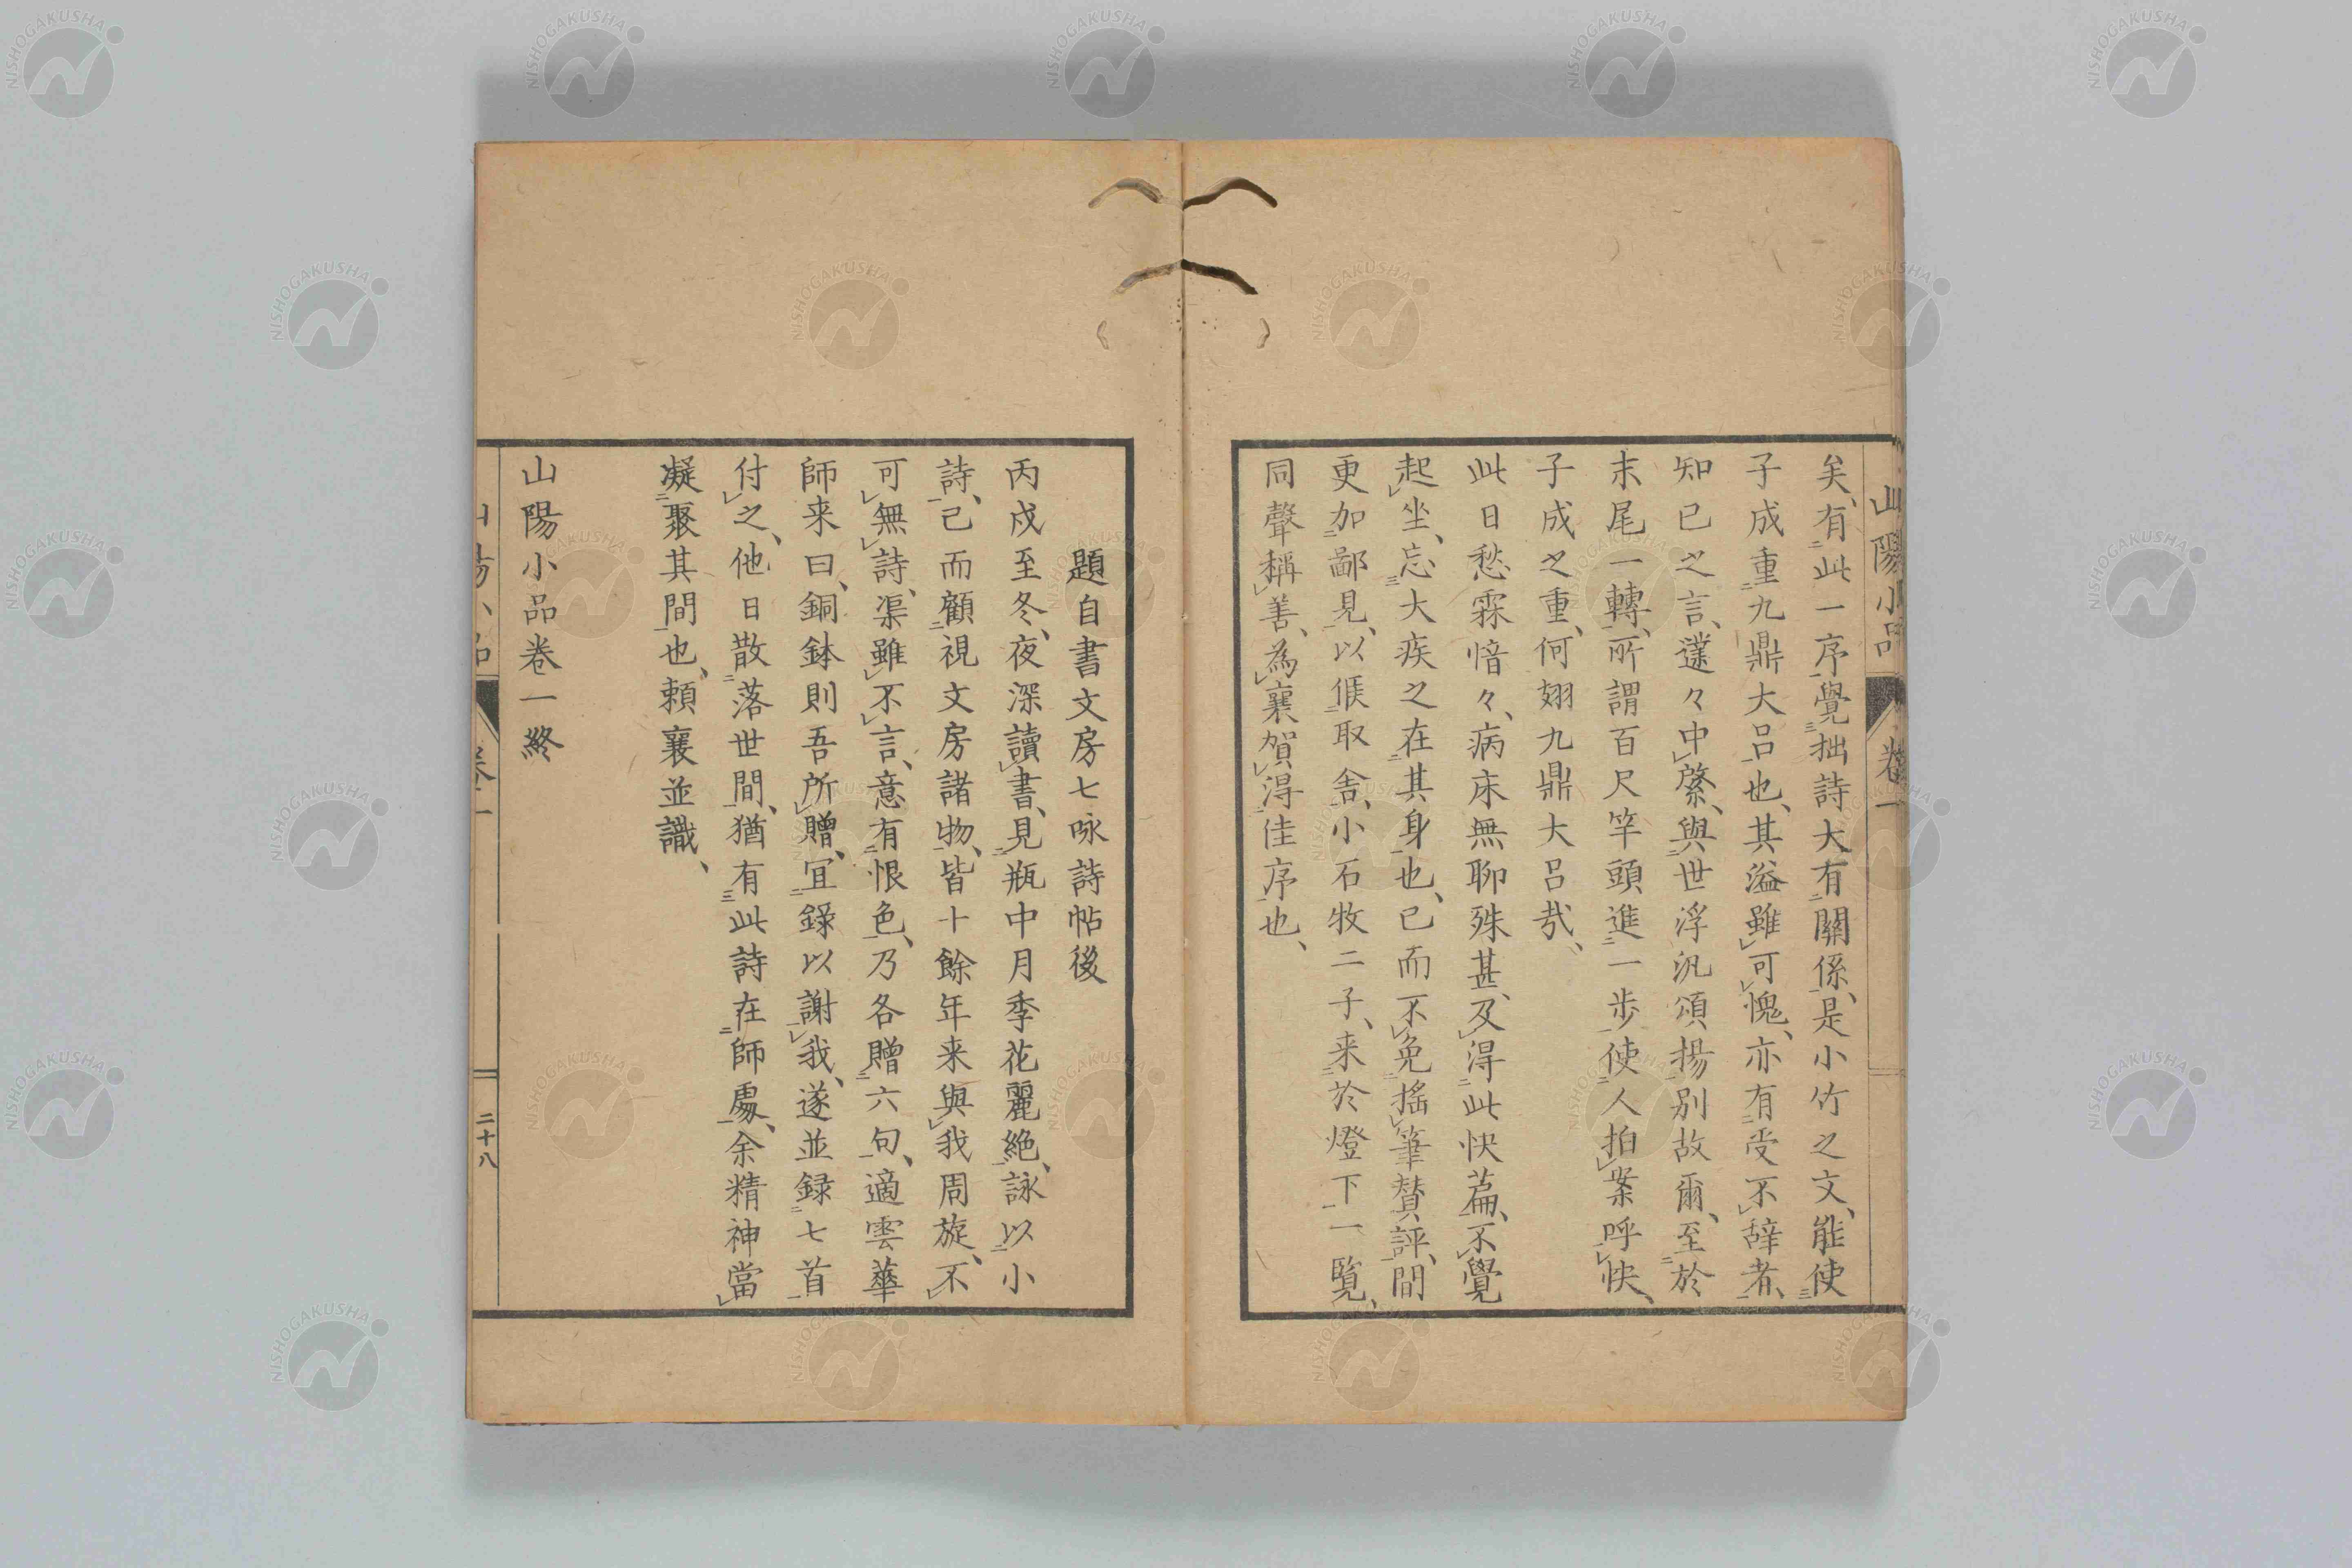 山陽小品 卷一
矣、有此一序、覺拙詩大有關係、是小竹之文、能使
子成重九鼎大呂也、其溢雖可愧、亦有受不辭者、
知己之言、蘧々中綮、與世浮汎頌揚別故爾、至於
末尾一轉、所謂百尺竿頭進一步、使人拍案呼快、
子成之重、何翅九鼎大呂哉、
此日愁霖愔々、病床無聊殊甚、及得此快篇、不覺
起坐、忘大疾之在其身也、已而不免搖筆贊評、間
更加鄙見、以俟取舍、小石牧二子、来於燈下一覽、
同聲稱善、為襄賀得佳序也、
題自書文房七咏詩帖後
丙戍至冬、夜深讀書、見瓶中月季花麗絶、詠以小
詩、已而顧視文房諸物、皆十餘年来與我周旋、不
可無詩、渠雖不言、意有恨色、乃各贈六句、適雲華
師来曰、銅鉢則吾所贈、宜錄以謝我、遂並録七首
付之、他日散落世間、猶有此詩在師處、余精神當
凝聚其間也、頼襄並識、
山陽小品卷一終
山陽小品 卷一 二十八
NISHOGAKUSHA